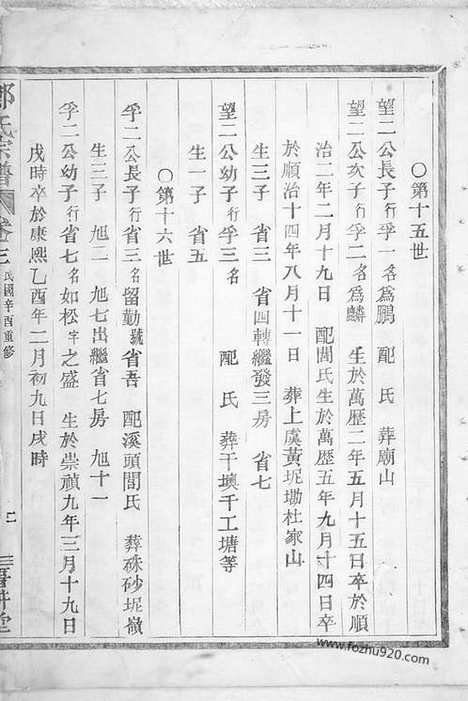 ○第十五世
望二公長子行孚一名為鵬　配　氏　葬廟山
望二公次子行孚二名為麟　生於萬歷二年五月十五日卒於順
治二年二月十九日　配閭氏生於萬歷五年九月十四日卒
於順治十四年八月十一日　葬上虞黃坭墈杜家山
生三子　省三　省四轉繼發三房　省七
望二公幼子行孚三名　　配　氏　葬干墺千工塘等
生一子　省五
○第十六世
孚二公長子行省三名留勤號省吾　配溪頭閭氏　葬硃砂坭嶺
生三子　旭二　旭七出繼省七房　旭十一
孚二公幼子行省七名如松字之盛　生於崇禎九年三月十九日
戌時卒於康熙乙酉年二月初九日戌時
氏宗譜　卷三　民國辛酉重修　二　堂
www.fozhu920.com